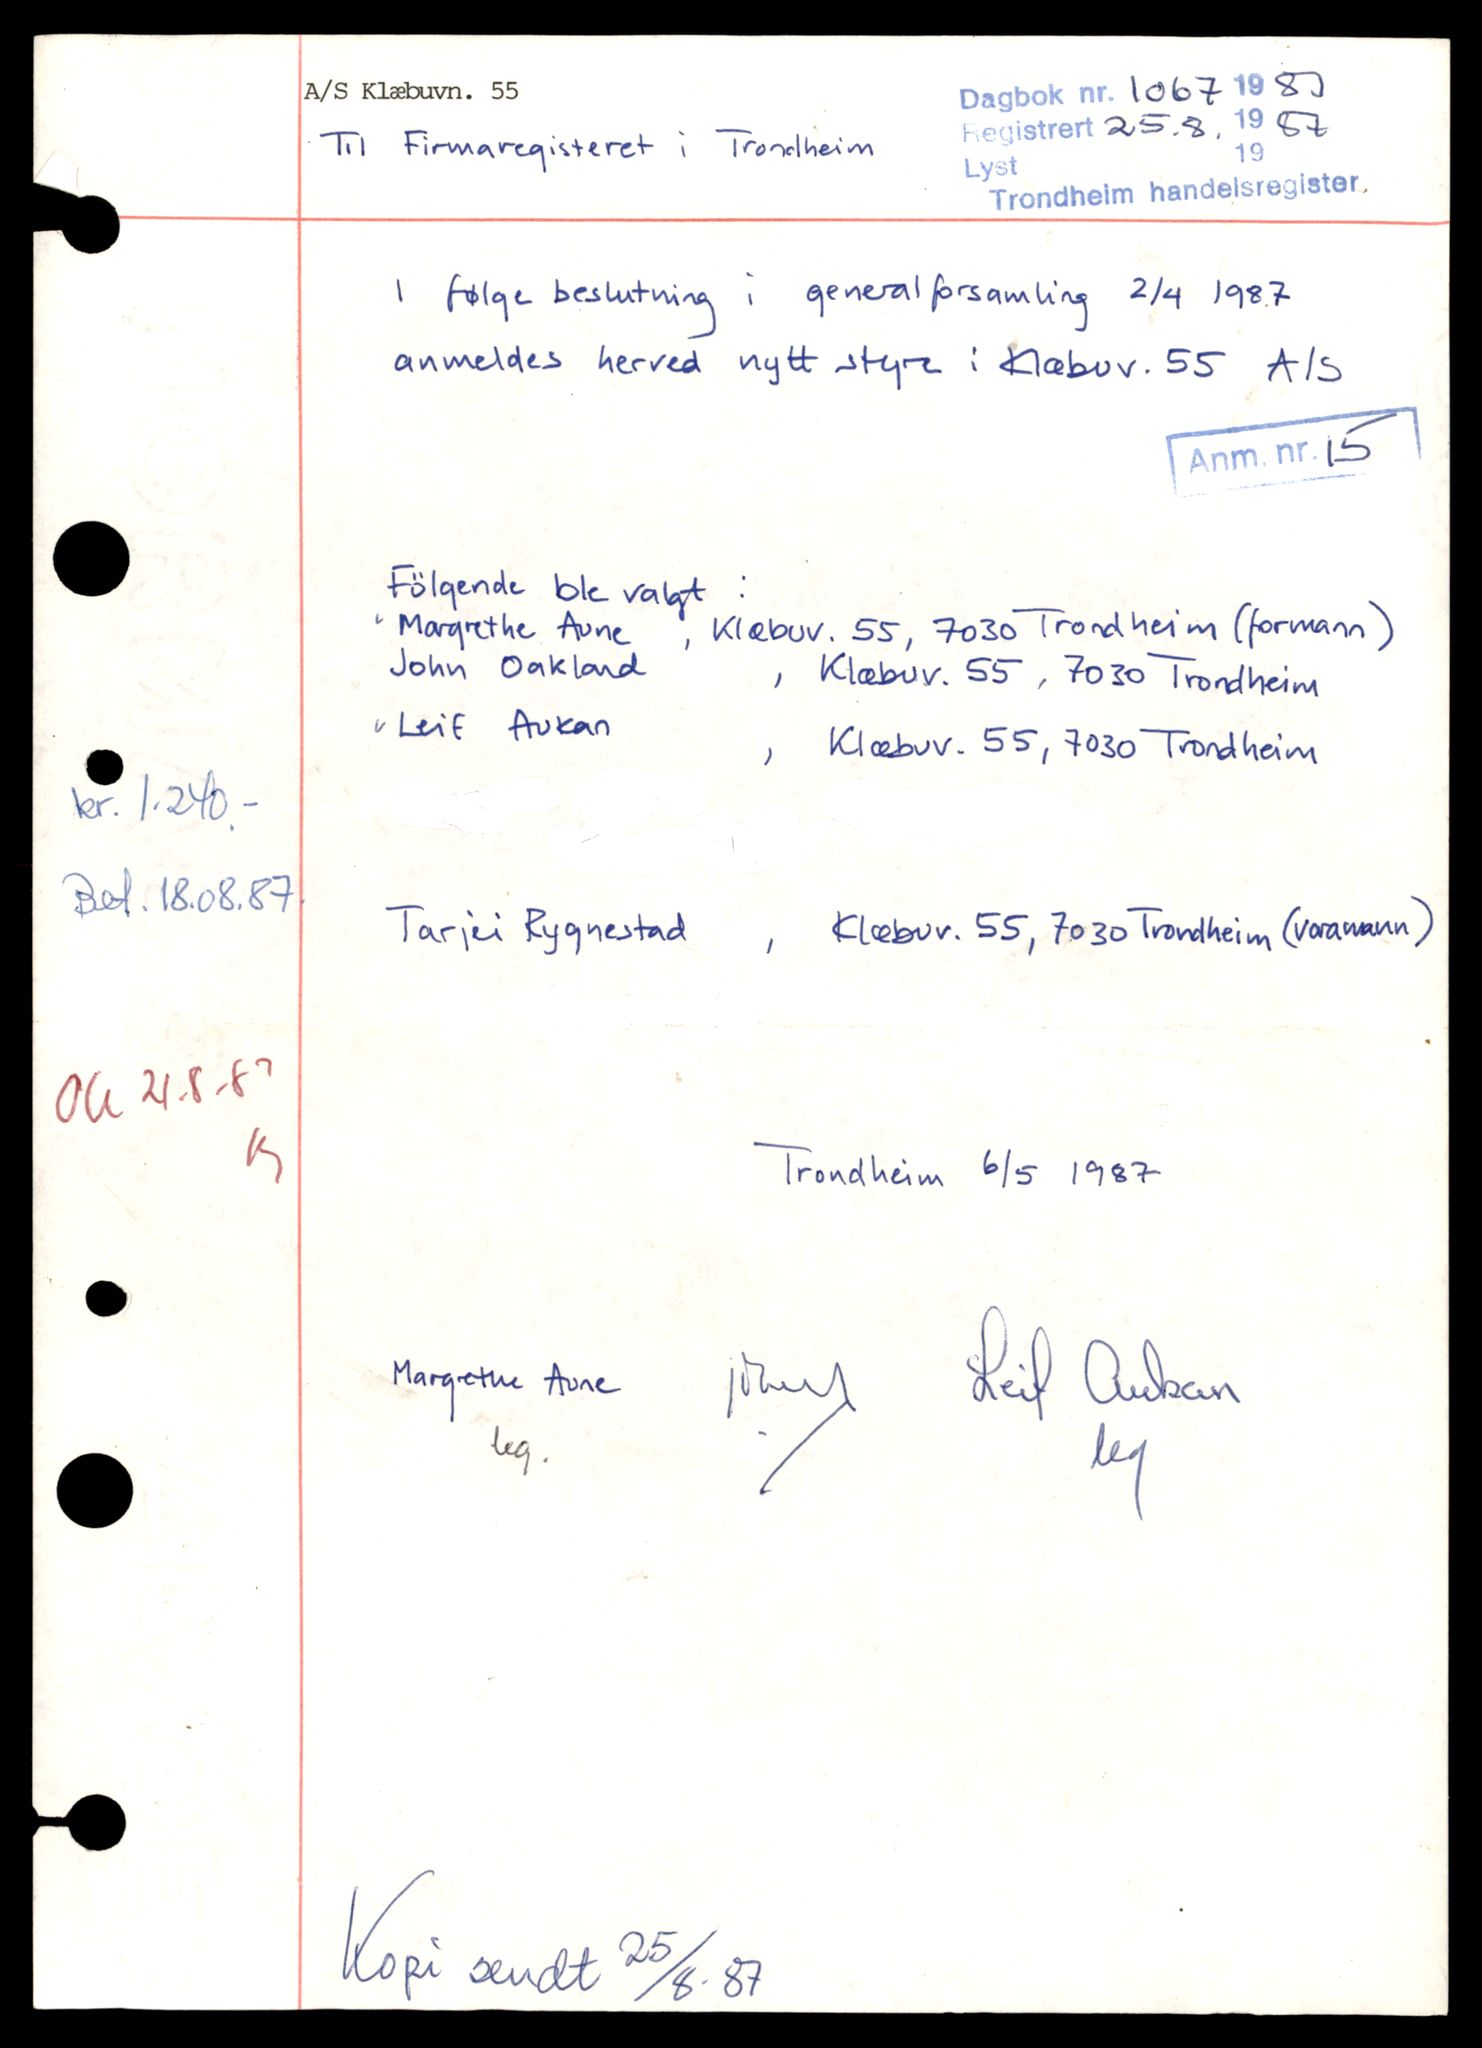 A/S Klæbuvn. 55
Til Firmaregisteret i Trondheim
Dagbok nr. 1067 1987
Registrert 25.8. 1987
Lyst 19
Trondheim handelsregister.
I følge beslutning i generalforsamling 2/4 1987
anmeldes herved nytt styre i Klæbuv. 55 A/S
Anm. nr. 15
Fölgende ble valgt :
Margrethe Aune , Klæbuv. 55, 7030 Trondheim (formann)
John Oakland , Klæbuv. 55, 7030 Trondheim
Leif Aukan , Klæbuv. 55, 7030 Trondheim
kr. 1.240.-
Bet. 18.08.87.
Tarjei Rygnestad , Klæbuv. 55, 7030 Trondheim (varamann)
Ok 21.8.87
Trondheim 6/5 1987
Margrethe Aune Leif Aukan
leg. leg
Kopi sendt 25/8.87